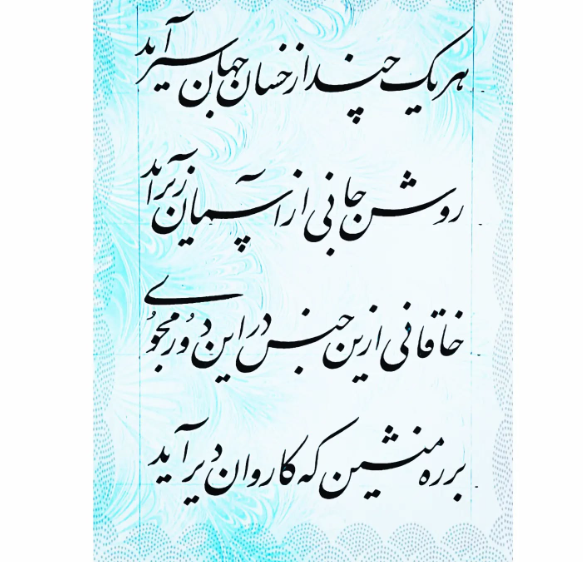 هر یک چند از خسان جهان سیر آید
روشن جانی از آسمان زیر آید
خاقانی ازین جنس در این دور مجوی
بر ره منشین که کاروان دیر آید